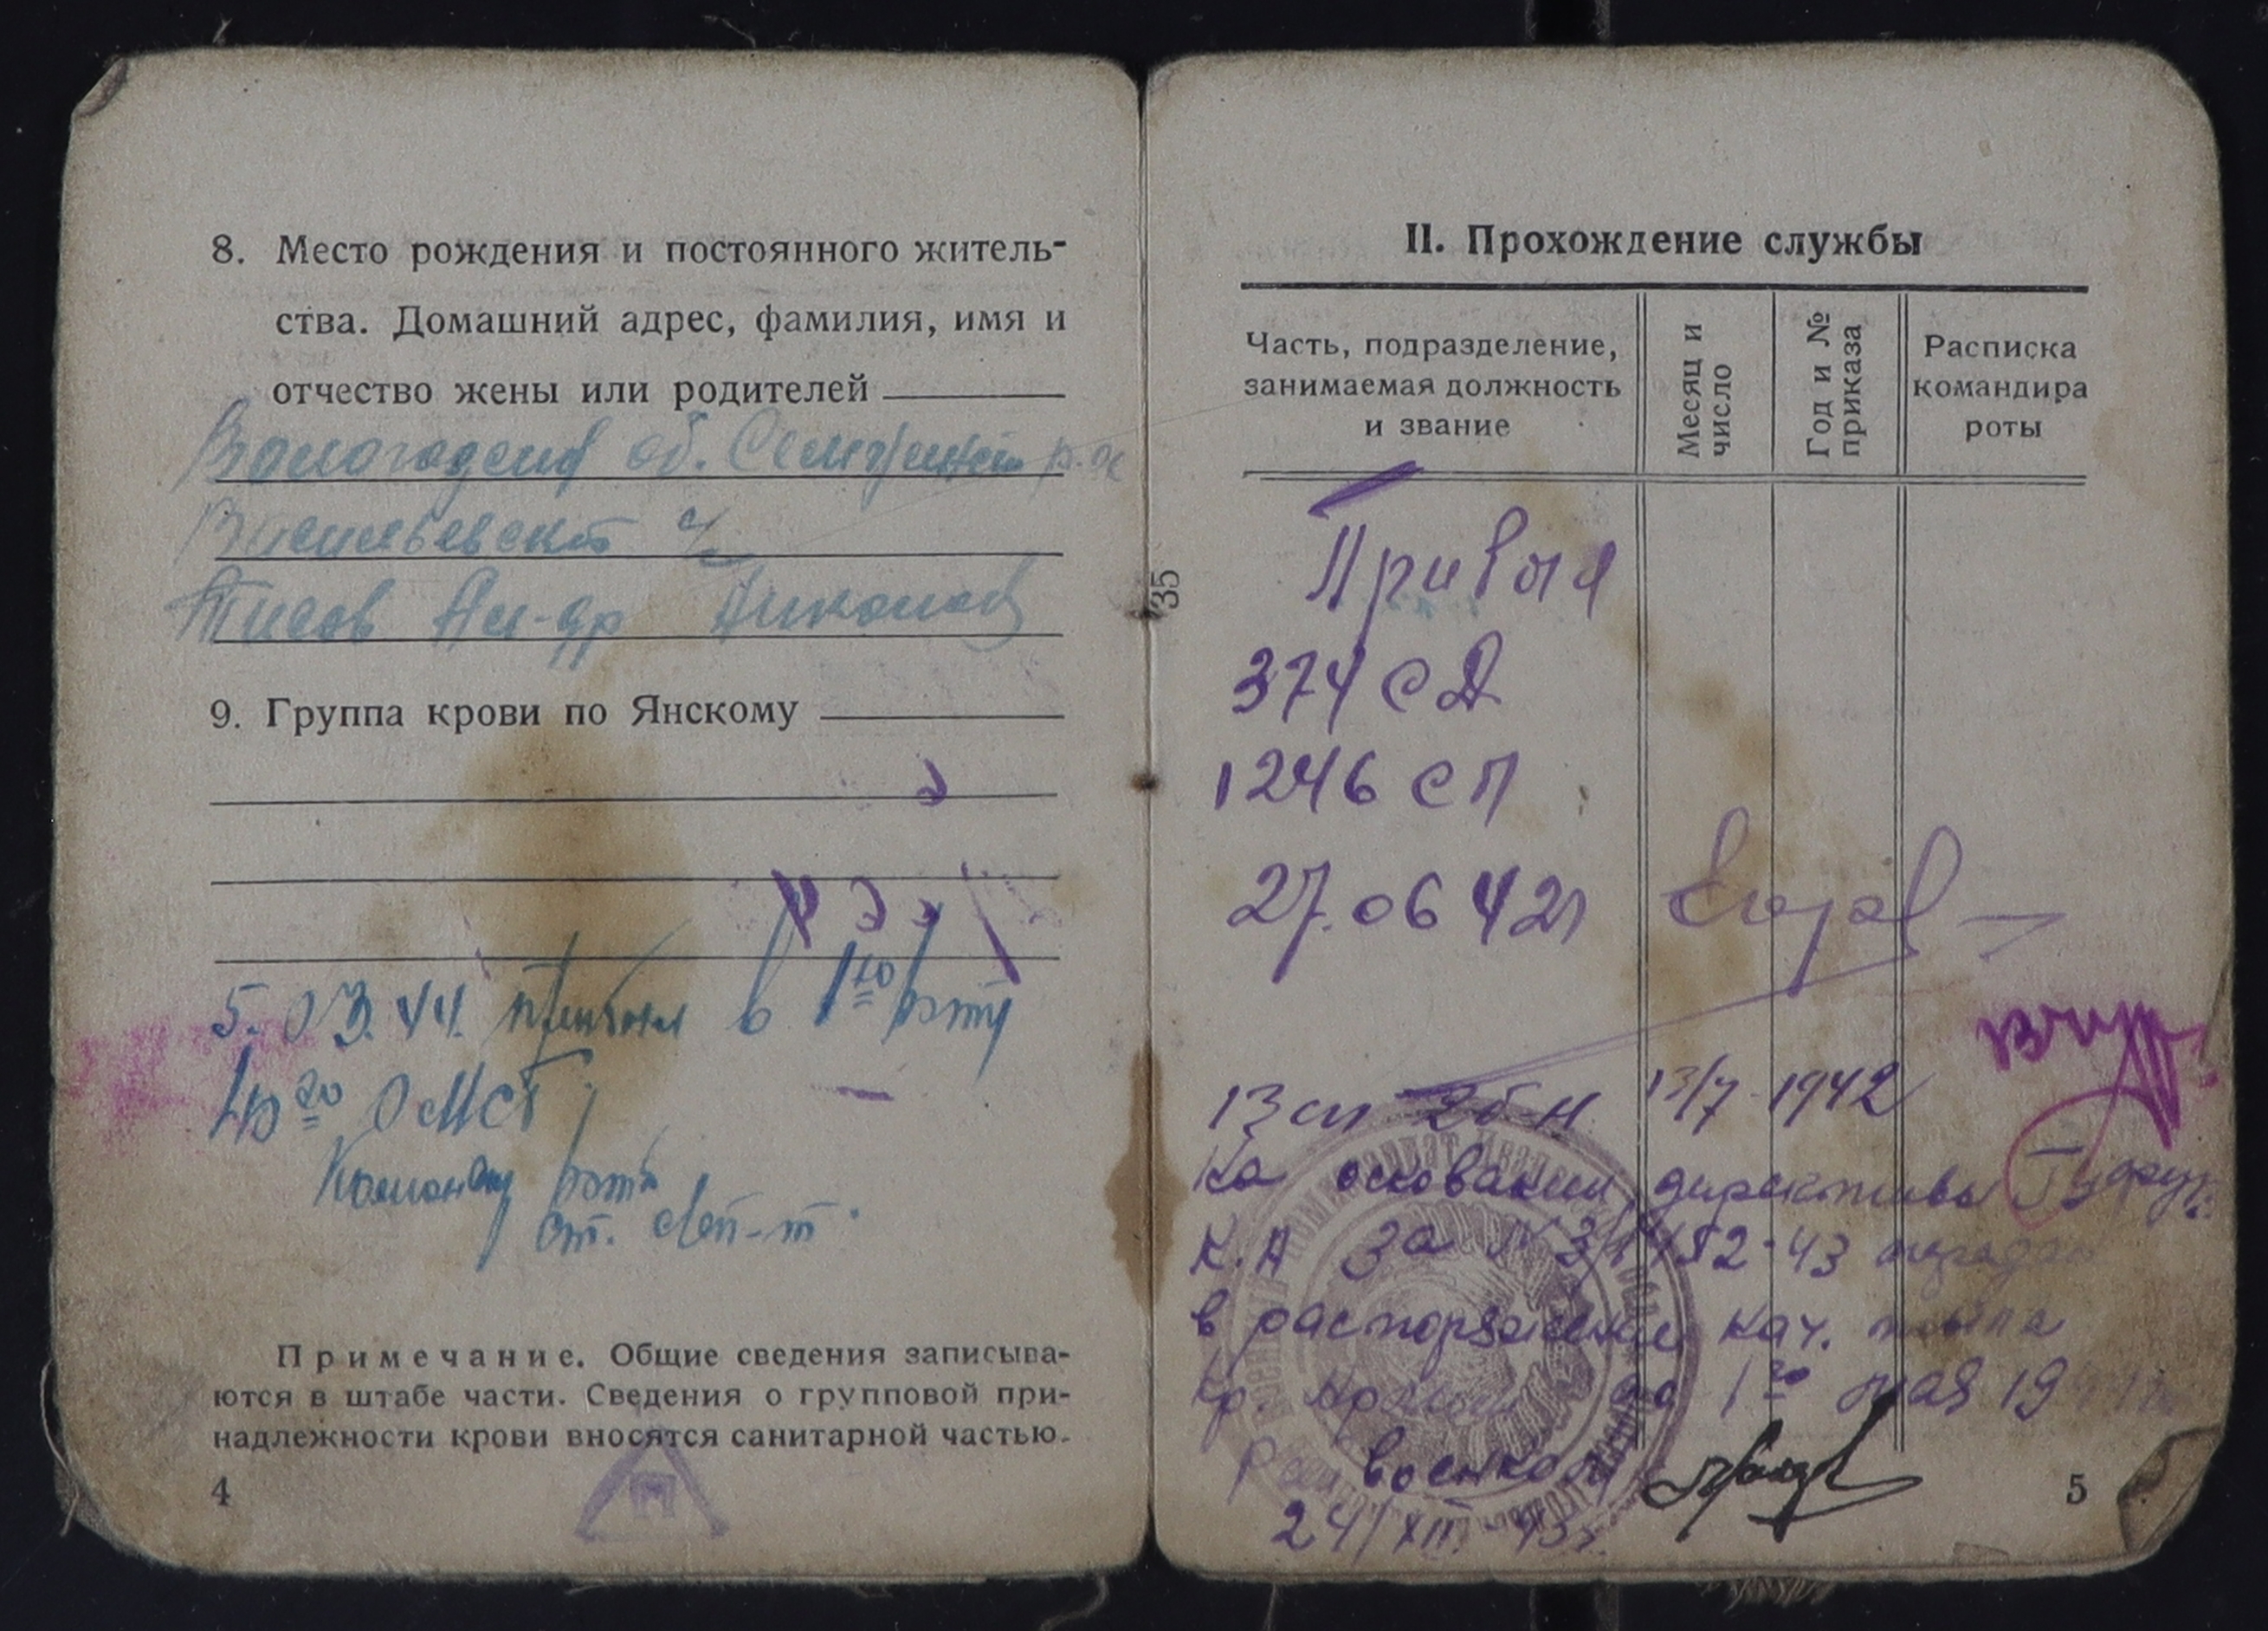 8. Место рождения и постоянного житель-
ства. Домашний адрес, фамилия, имя и
отчество жены или родителей
об. р-он
Васильевский с/с
Титов Ал-др Николаев
9. Группа крови по Янскому
5.03.44. прибыл в 1ю роту
4го ОМСБ
Командир роты
ст. лей-т
Примечание. Общие сведения записыва-
ются в штабе части. Сведения о групповой при-
надлежности крови вносятся санитарной частью.
4
35
II. Прохождение службы
Часть, подразделение,
занимаемая должность
и звание
Месяц и
число
Год и №
приказа
Расписка
командира
роты
Прибыл
374 СД
1246 СП
27.06 42г
13 сп 2 б-н 13/7 1942
На основании директивы
К.А за № 43
в распоряжение нач. тыла
Кр. Армии до 1го мая 19
Райвоенком
24/XII-43г.
5